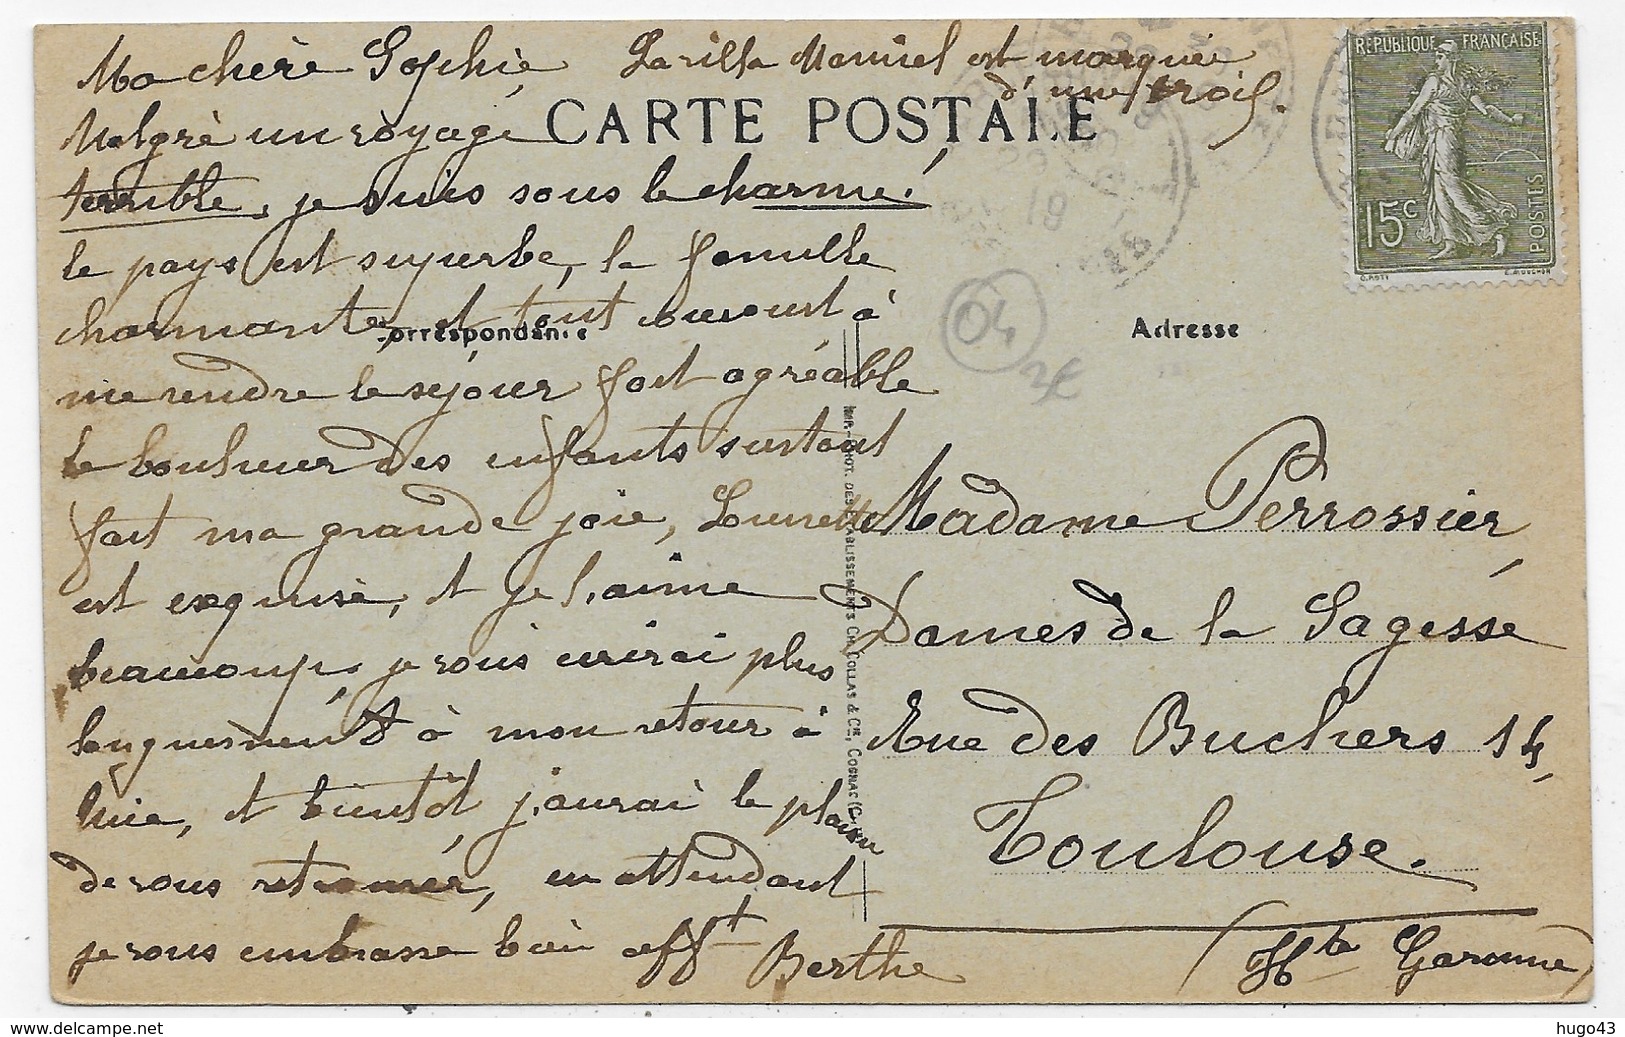 Ma chère Sophie,
La villa Marciel est marquée
d'une croix.
RÉPUBLIQUE FRANÇAISE
15c
POSTES
CARTE POSTALE
Malgré un voyage
terrible, je suis sous le charme!
le pays est superbe, la famille
charmante, et tout concourt à
Correspondance
Adresse
04
me rendre le séjour fort agréable
le bonheur des enfants surtout
fait ma grande joie,
est exquise, et je l'aime
beaucoup, je vous écrirai plus
longuement à mon retour à
et bientôt j'aurai le plaisir
de vous retrouver, en attendant
je vous embrasse bien afft
Berthe
IMP.-PHOT. DES ÉTABLISSEMENTS CH. COLLAS & Cie, COGNAC
Madame Perrossier,
Dames de la Sagesse
Rue des Buchers 14,
Toulouse.
(Hte Garonne)
hugo43